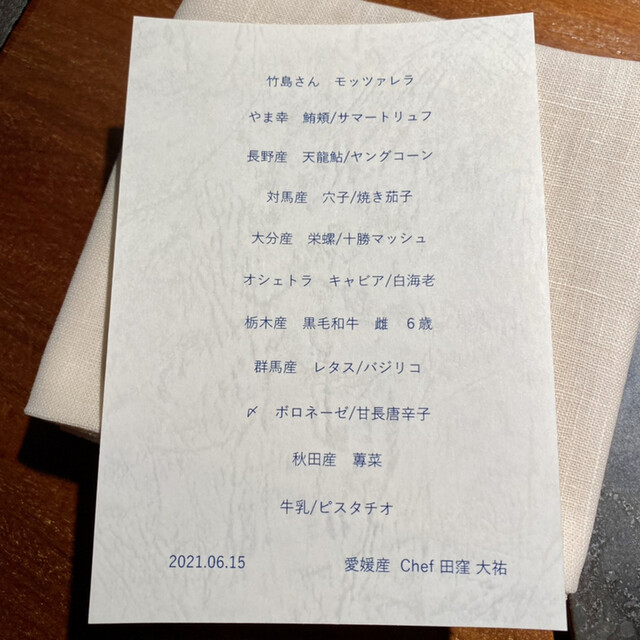 竹島さん　モッツァレラ
やま幸　鮪頬/サマートリュフ
長野産　天龍鮎/ヤングコーン
対馬産　穴子/焼き茄子
大分産　栄螺/十勝マッシュ
オシェトラ　キャビア/白海老
栃木産　黒毛和牛　雌　６歳
群馬産　レタス/バジリコ
〆　ボロネーゼ/甘長唐辛子
秋田産　蓴菜
牛乳/ピスタチオ
2021.06.15　愛媛産 Chef 田窪 大祐